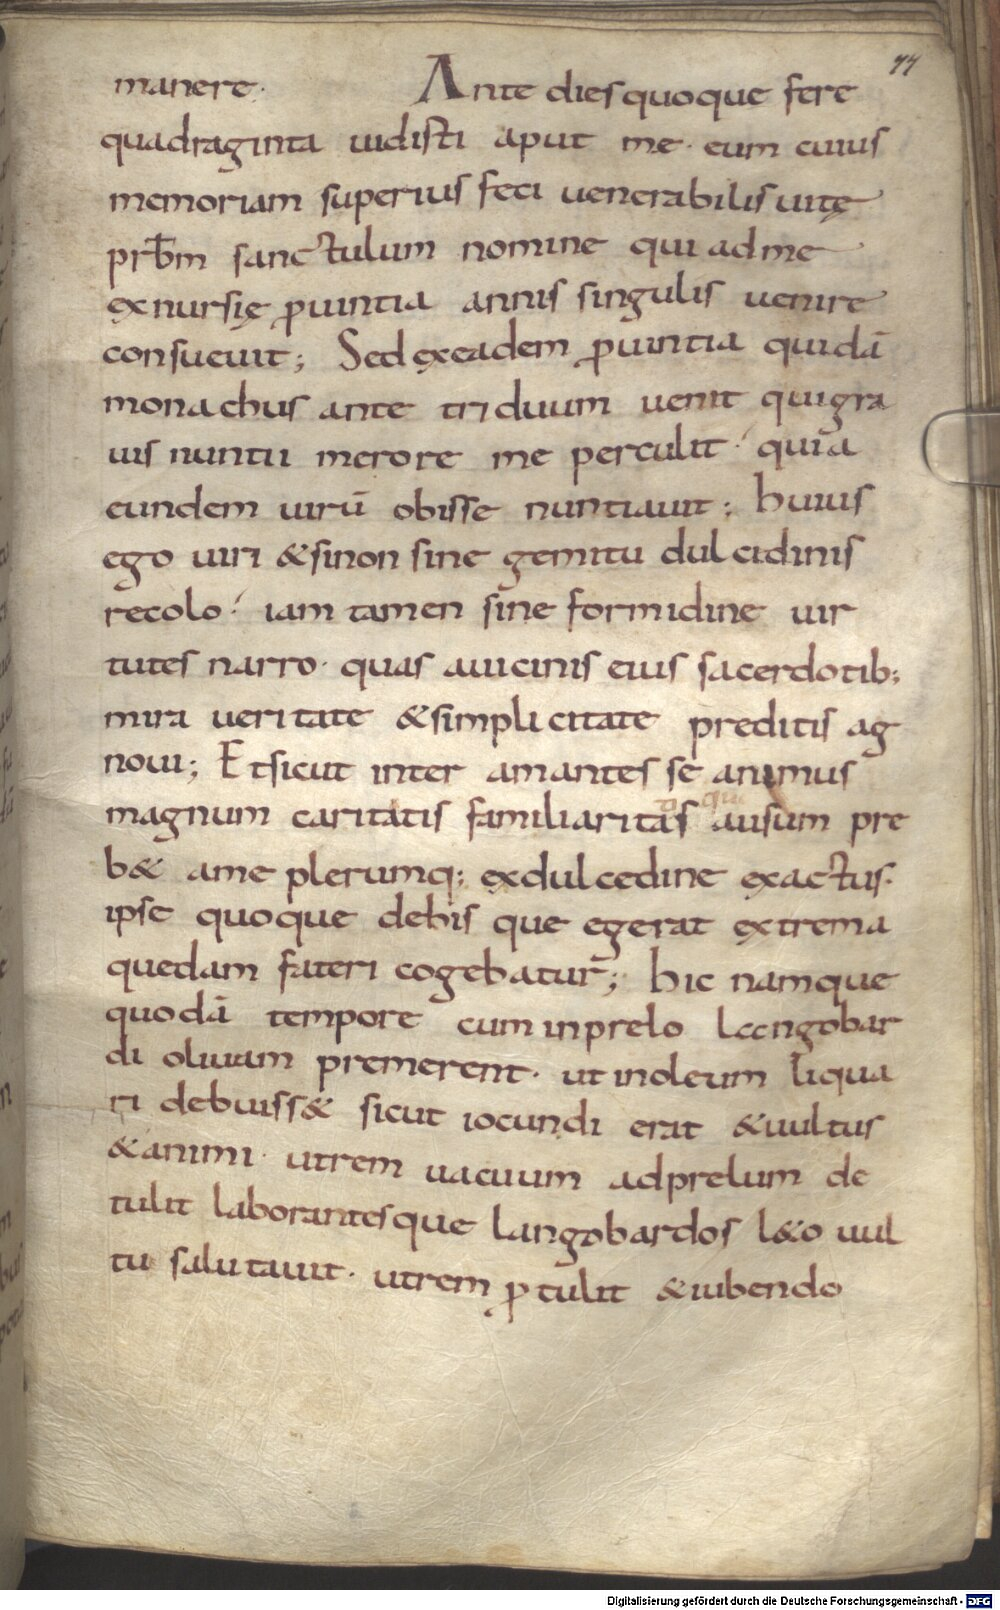 77
manere. Ante dies quoque fere
quadraginta uidisti aput me. eum cuius
memoriam superius feci uenerabilis uitę
prƀm sanctulum nomine qui ad me
ex nursię ꝓuintia annis singulis uenire
consueuit; Sed ex eadem ꝓuintia quidā
monachus ante triduum uenit qui gra
uis nuntii merore me perculit. quia
eundem uirū obisse nuntiauit; huius
ego uiri & si non sine gemitu dulcidinis
recolo. iam tamen sine formidine uir
tutes narro. quas a uicinis eius sacerdotib;
mira ueritate & simplicitate preditis ag
noui; Et sicut inter amantes se animus
magnum caritatis familiaritas ausum pre
b& a me plerumq; ex dulcedine exactus.
ipse quoque debis que egerat extrema
quedam fateri cogebatur; hic namque
quodā tempore cum in prelo Langobar
di oliuam premerent. ut in oleum liqua
ri debuiss& sicut iocundi erat & uultus
& animi. utrem uacuum ad prelum de
tulit laborantesque langobardos l&o uul
tu salutauit. utrem ꝓtulit & iubendo
Digitalisierung gefördert durch die Deutsche Forschungsgemeinschaft - DFG